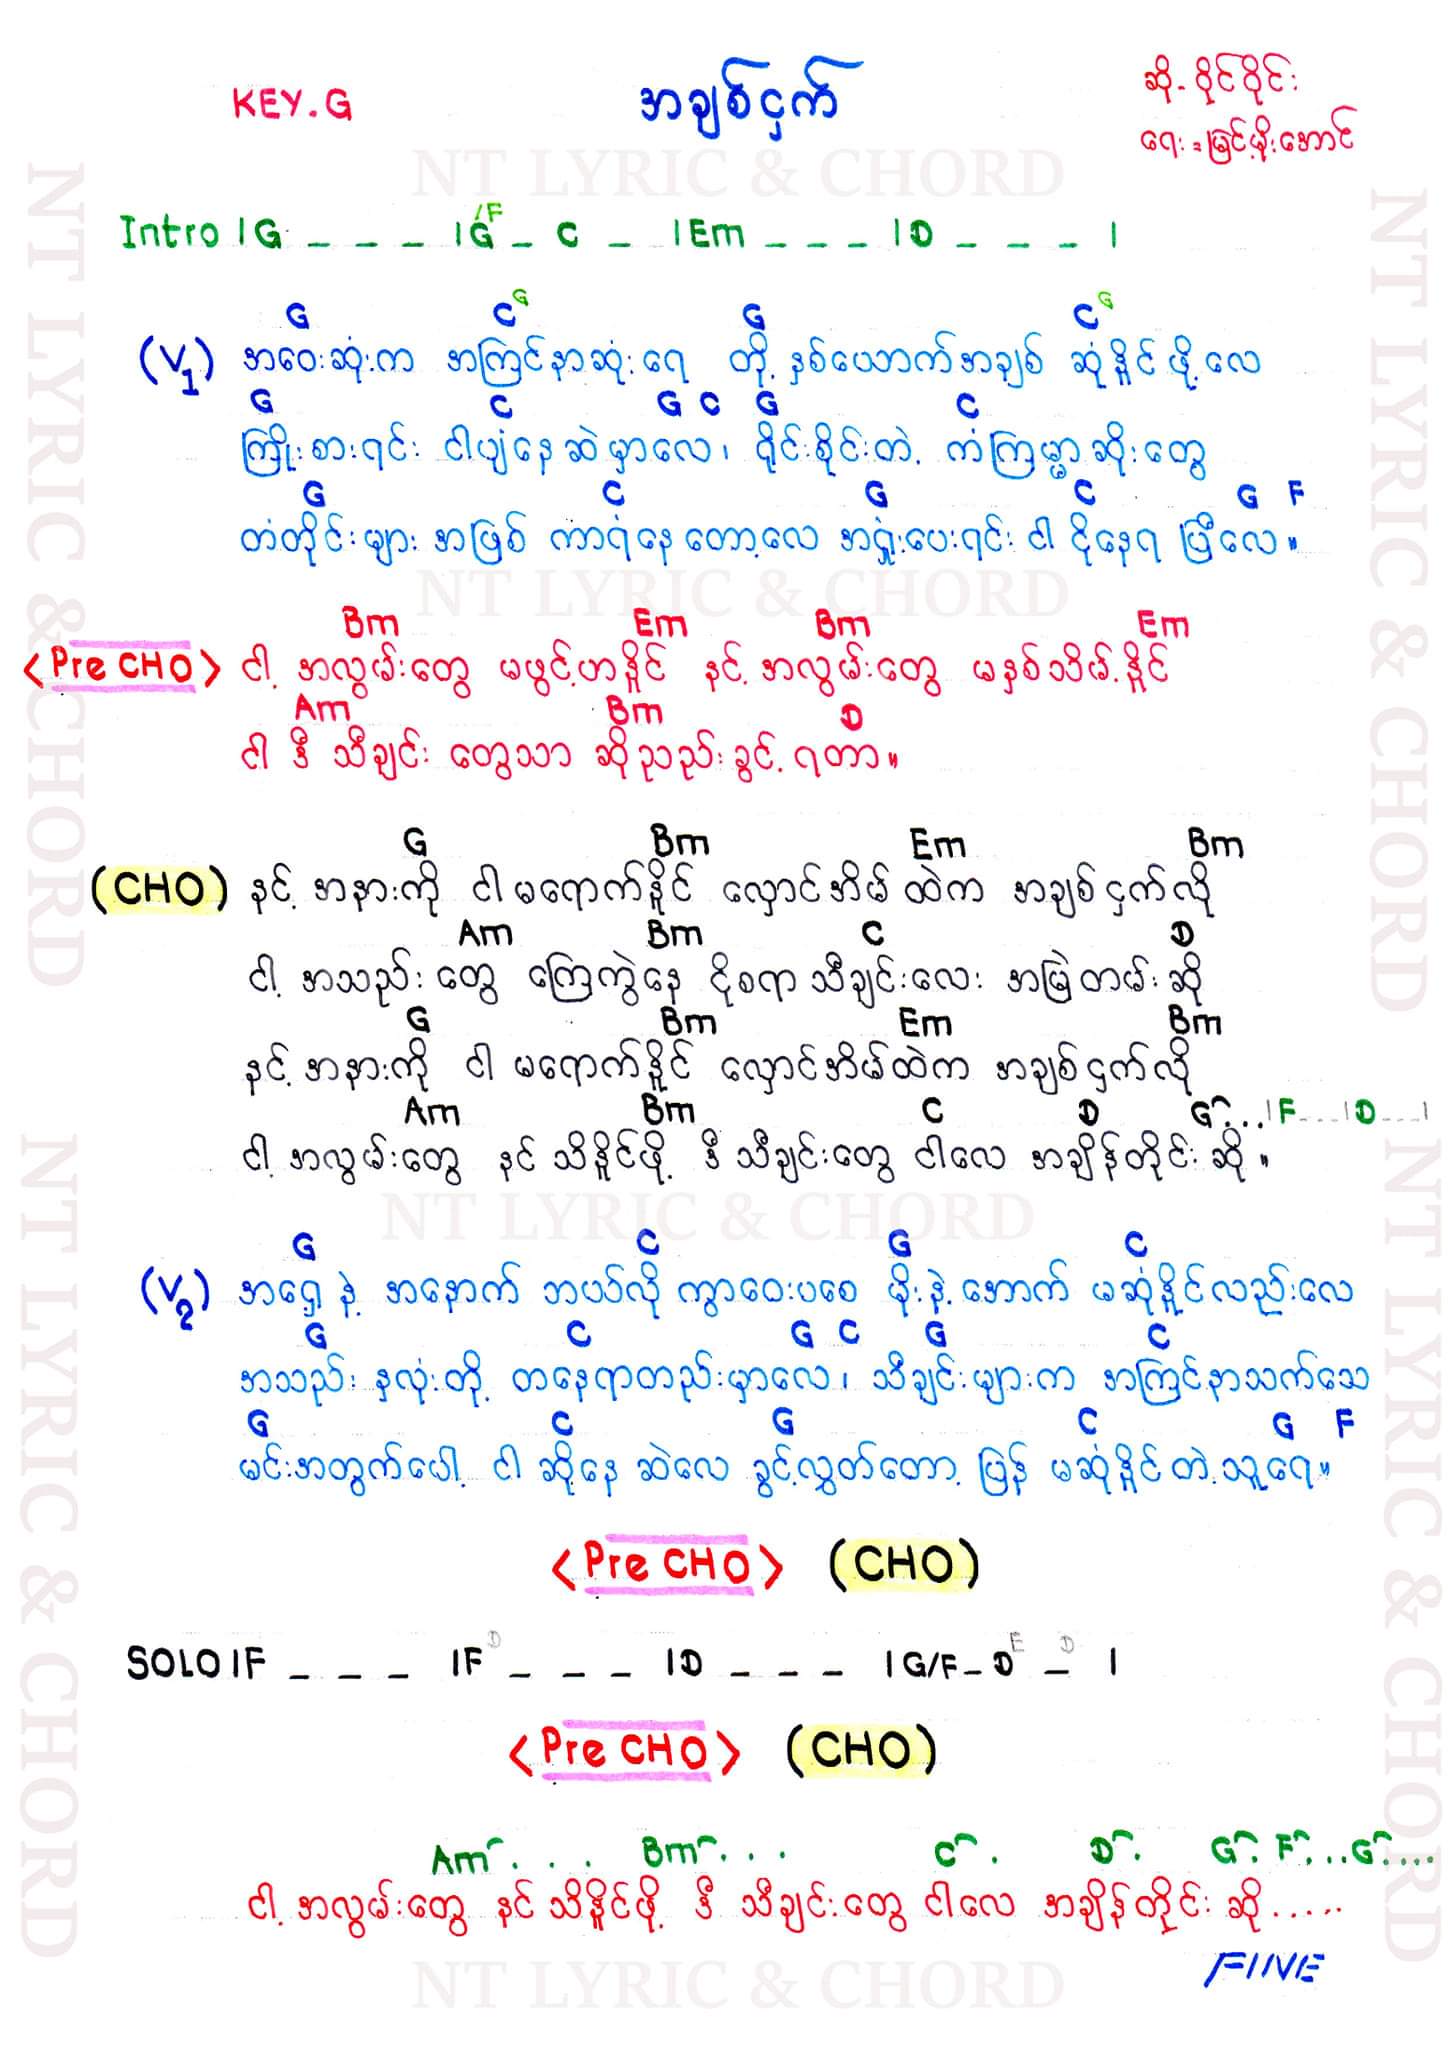 KEY.G
အချစ်ငှက်
ဆို - ဝိုင်ဝိုင်း
ရေး = မြင့်မိုးအောင်
NT LYRIC & CHORD
Intro | G _ _ _ | G/F _ C _ | Em _ _ _ | D _ _ _ |
G C G G C G
(V1) အဝေးဆုံးက အကြင်နာဆုံးရေ တို့ နှစ်ယောက်အချစ် ဆုံနိူင်ဖို့လေ
G C G C G C
ကြိုးစားရင်း ငါပျံနေဆဲမှာလေ၊ ရိုင်းစိုင်းတဲ့ ကံကြမ္မာဆိုးတွေ
G C G C G F
တံတိုင်းများ အဖြစ် ကာရံနေတော့လေ အရှုံးပေးရင်း ငါ ငိုနေရ ပြီလေ။
NT LYRIC & CHORD
Bm Em Bm Em
<Pre CHO> ငါ့ အလွမ်းတွေ မဖွင့်ဟနိူင် နင့် အလွမ်းတွေ မနှစ်သိမ့်နိူင်
Am Bm D
ငါ ဒီ သီချင်း တွေသာ ဆိုညည်းခွင့် ရတာ။
G Bm Em Bm
(CHO) နင့် အနားကို ငါ မရောက်နိူင် လှောင်အိမ်ထဲက အချစ်ငှက်လို
Am Bm C D
ငါ့ အသည်းတွေ ကြေကွဲနေ ငိုစရာ သီချင်းလေး အမြဲတမ်းဆို
G Bm Em Bm
နင့် အနားကို ငါ မရောက်နိူင် လှောင်အိမ်ထဲက အချစ်ငှက်လို
Am Bm C D G...|F...|D...|
ငါ့ အလွမ်းတွေ နင် သိနိူင်ဖို့ ဒီ သီချင်းတွေ ငါလေ အချိန်တိုင်းဆို။
NT LYRIC & CHORD
G C G C
(V2) အရှေ့နဲ့ အနောက် ဘယ်လို ကွာဝေးပစေ မိုးနဲ့အောက် မဆုံနိူင်လည်းလေ
G C G C G C
အသည်းနှလုံးတို့ တနေရာတည်းမှာလေ၊ သီချင်းများက အကြင်နာသက်သေ
G C G C G F
မင်းအတွက်ပေါ့ ငါ ဆိုနေဆဲလေ ခွင့်လွှတ်တော့ ပြန် မဆုံနိူင်တဲ့သူရေ။
<Pre CHO> (CHO)
SOLO | F _ _ _ | F D _ _ _ | D _ _ _ | G/F _ D E _ D |
<Pre CHO> (CHO)
Am... Bm... C. D. G. F...G....
ငါ့ အလွမ်းတွေ နင် သိနိူင်ဖို့ ဒီ သီချင်းတွေ ငါလေ အချိန်တိုင်း ဆို.....
FINE
NT LYRIC & CHORD
NT LYRIC & CHORD
NT LYRIC & CHORD
NT LYRIC & CHORD
NT LYRIC & CHORD